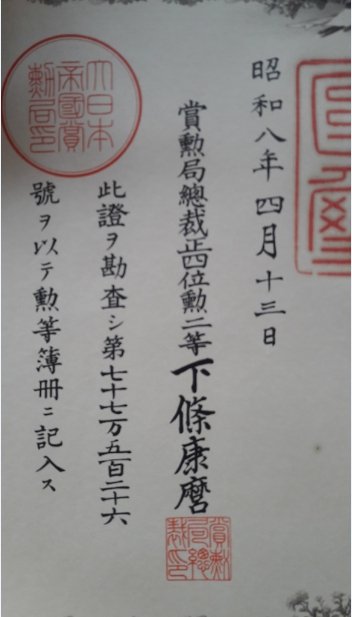 昭和八年四月十三日
賞勲局總裁正四位勲二等下條康麿
賞勲
局總
裁印
此證ヲ勘査シ第七十七万五百二十六
號ヲ以テ勲等簿冊ニ記入ス
大日本
帝國賞
勲局印